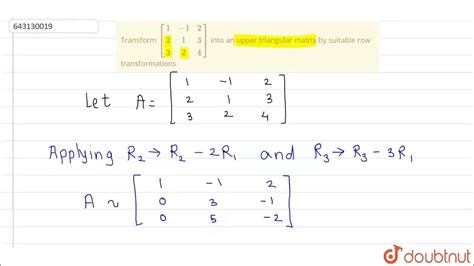 643130019
Transform [1 -1 2
2 1 3
3 2 4] into an upper triangular matrix by suitable row
transformations
Let A = [1 -1 2
2 1 3
3 2 4]
Applying R₂ → R₂ - 2R₁ and R₃ → R₃ - 3R₁
A ~ [1 -1 2
0 3 -1
0 5 -2]
doubtnut